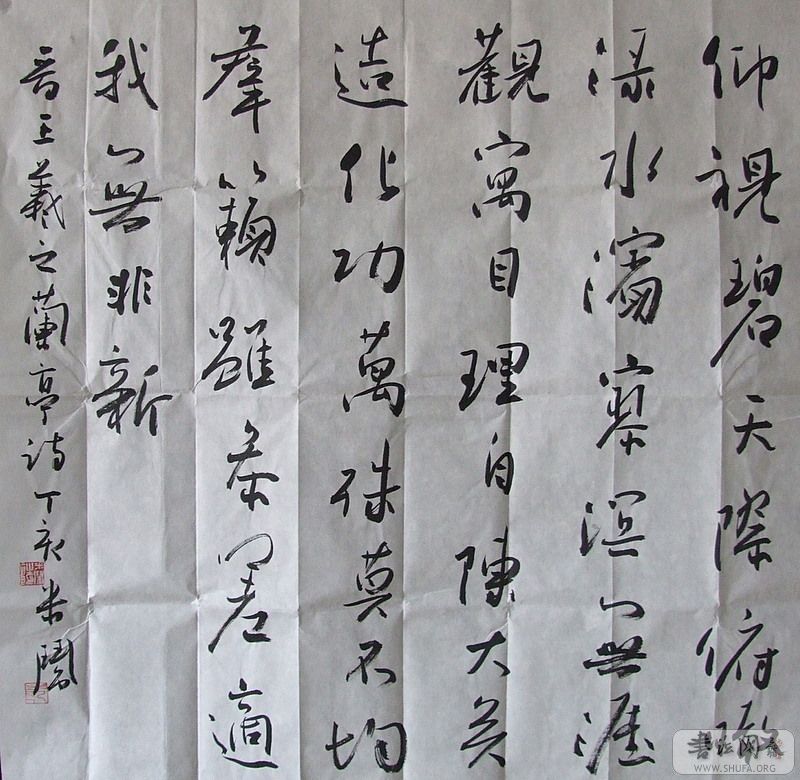 仰視碧天際俯瞰
渌水濱寥溟無涯
觀寓目理自陳大矣
造化功萬殊莫不均
羣籟雖參差適
我無非新
晋王羲之蘭亭诗丁亥米
WWW.SHUFA.ORG